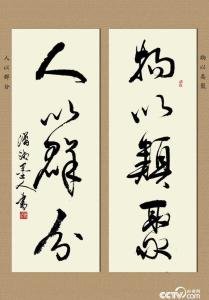 物以类聚
物以類聚
人以群分
人以群分
墨人书
CCTV.com